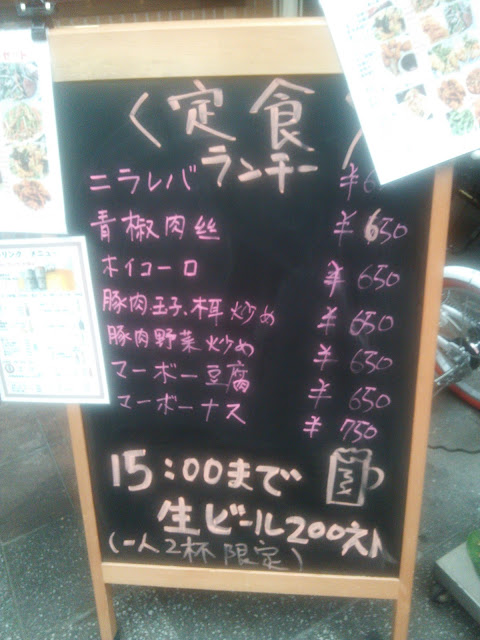 セット
リンク・メニュー
〈定食
ランチー
ニラレバ ¥6
青椒肉丝 ¥650
ホイコーロ ¥650
豚肉玉子、栮炒め ¥650
豚肉野菜炒め ¥650
マーボー豆腐 ¥650
マーボーナス ¥750
15:00まで
生ビール200えん
(一人2杯限定)